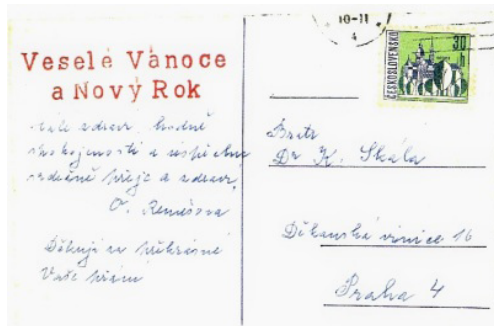 Veselé Vánoce
a Nový Rok
zdraví, hodně
spokojenosti a úspěchů
srdečně přeje a zdraví,
O. Remešova
Děkuji za překrásné
Vaše přání
10-11
4
ČESKOSLOVENSKO
30
h
Bratr
Dr K. Skála
Děkanská vinice 16
Praha 4